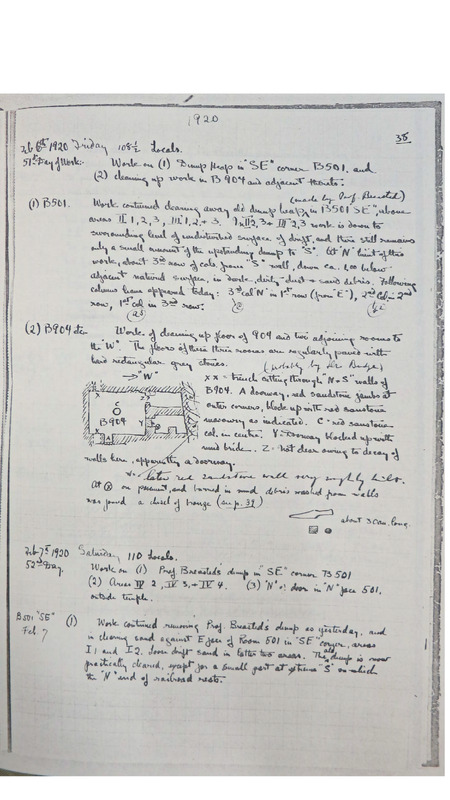 1920
38
Feb 6th 1920 Friday 108½ Locals.
51st Day of Work:- Work on (1) Dump Heap in "SE" corner B501, and
(2) cleaning up work in B904 and adjacent thereto.
(made by Prof. Breasted)
(1) B501. Work continued clearing away old dump heap in B501 "SE", above
areas II 1, 2, 3, III 1, 2, + 3. In II 2, 3 + III 2, 3 work is down to
surrounding level of undisturbed surface of drift, and there still remains
only a small amount of the upstanding dump to "S". At "N" limit of this
work, about 3rd row of cols. from "S" wall, down ca. 1.00 below
adjacent natural surface, in dark, dirty dust + sand debris. Following
columns have appeared today: 3rd col "N" in 1st row (from E), 2nd col in 2nd
row, 1st col in 3rd row.
(2) B904 etc Work of cleaning up floor of 904 and two adjoining rooms to
the "W". The floors of these three rooms are regularly paved with
hard rectangular grey stones. (notably by Dr. Budge)
→ "W"
xx = trench cutting through "N" + "S" walls of
B904. A doorway, red sandstone jambs at
outer corners, block up with red sandstone
masonry as indicated. C = red sandstone
col. in centre. Y = Doorway blocked up with
mud brick. Z = not clear owing to decay of
C
B904
walls here, apparently a doorway.
later red sandstone wall very roughly built.
At ⊗ on pavement, and buried in mud debris washed from walls
was found a chisel of bronze (see p. 39)
about 3 cm. long.
Feb 7th 1920 Saturday 110 Locals.
52nd Day. Work on (1) Prof Breasted's dump in "SE" corner B501
(2) Areas IV 2, IV 3, + IV 4. (3) "N" of door in "N" face 501,
outside temple.
B501 "SE" (1) Work continued removing Prof. Breasted's dump as yesterday, and
Feb. 7 in clearing sand against E face of Room 501 in "SE" corner, areas
I 1 and I 2. Loose drift sand in latter two areas. The old dump is now
practically cleared, except for a small part at extreme "S" on which
the "N" end of railroad rests.